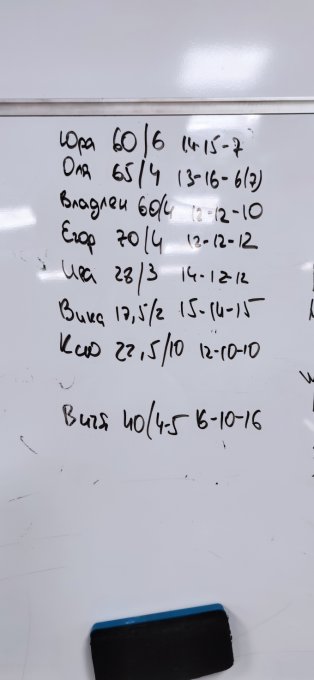 Юра 60/6 14-15-7
Оля 65/4 13-16-6(7)
Владлен 60/4 12-12-10
Егор 70/4 12-12-12
Ива 28/3 14-12-12
Вика 17,5/2 15-14-15
Ксю 22,5/10 12-10-10
Витя 40/4-5 16-10-16